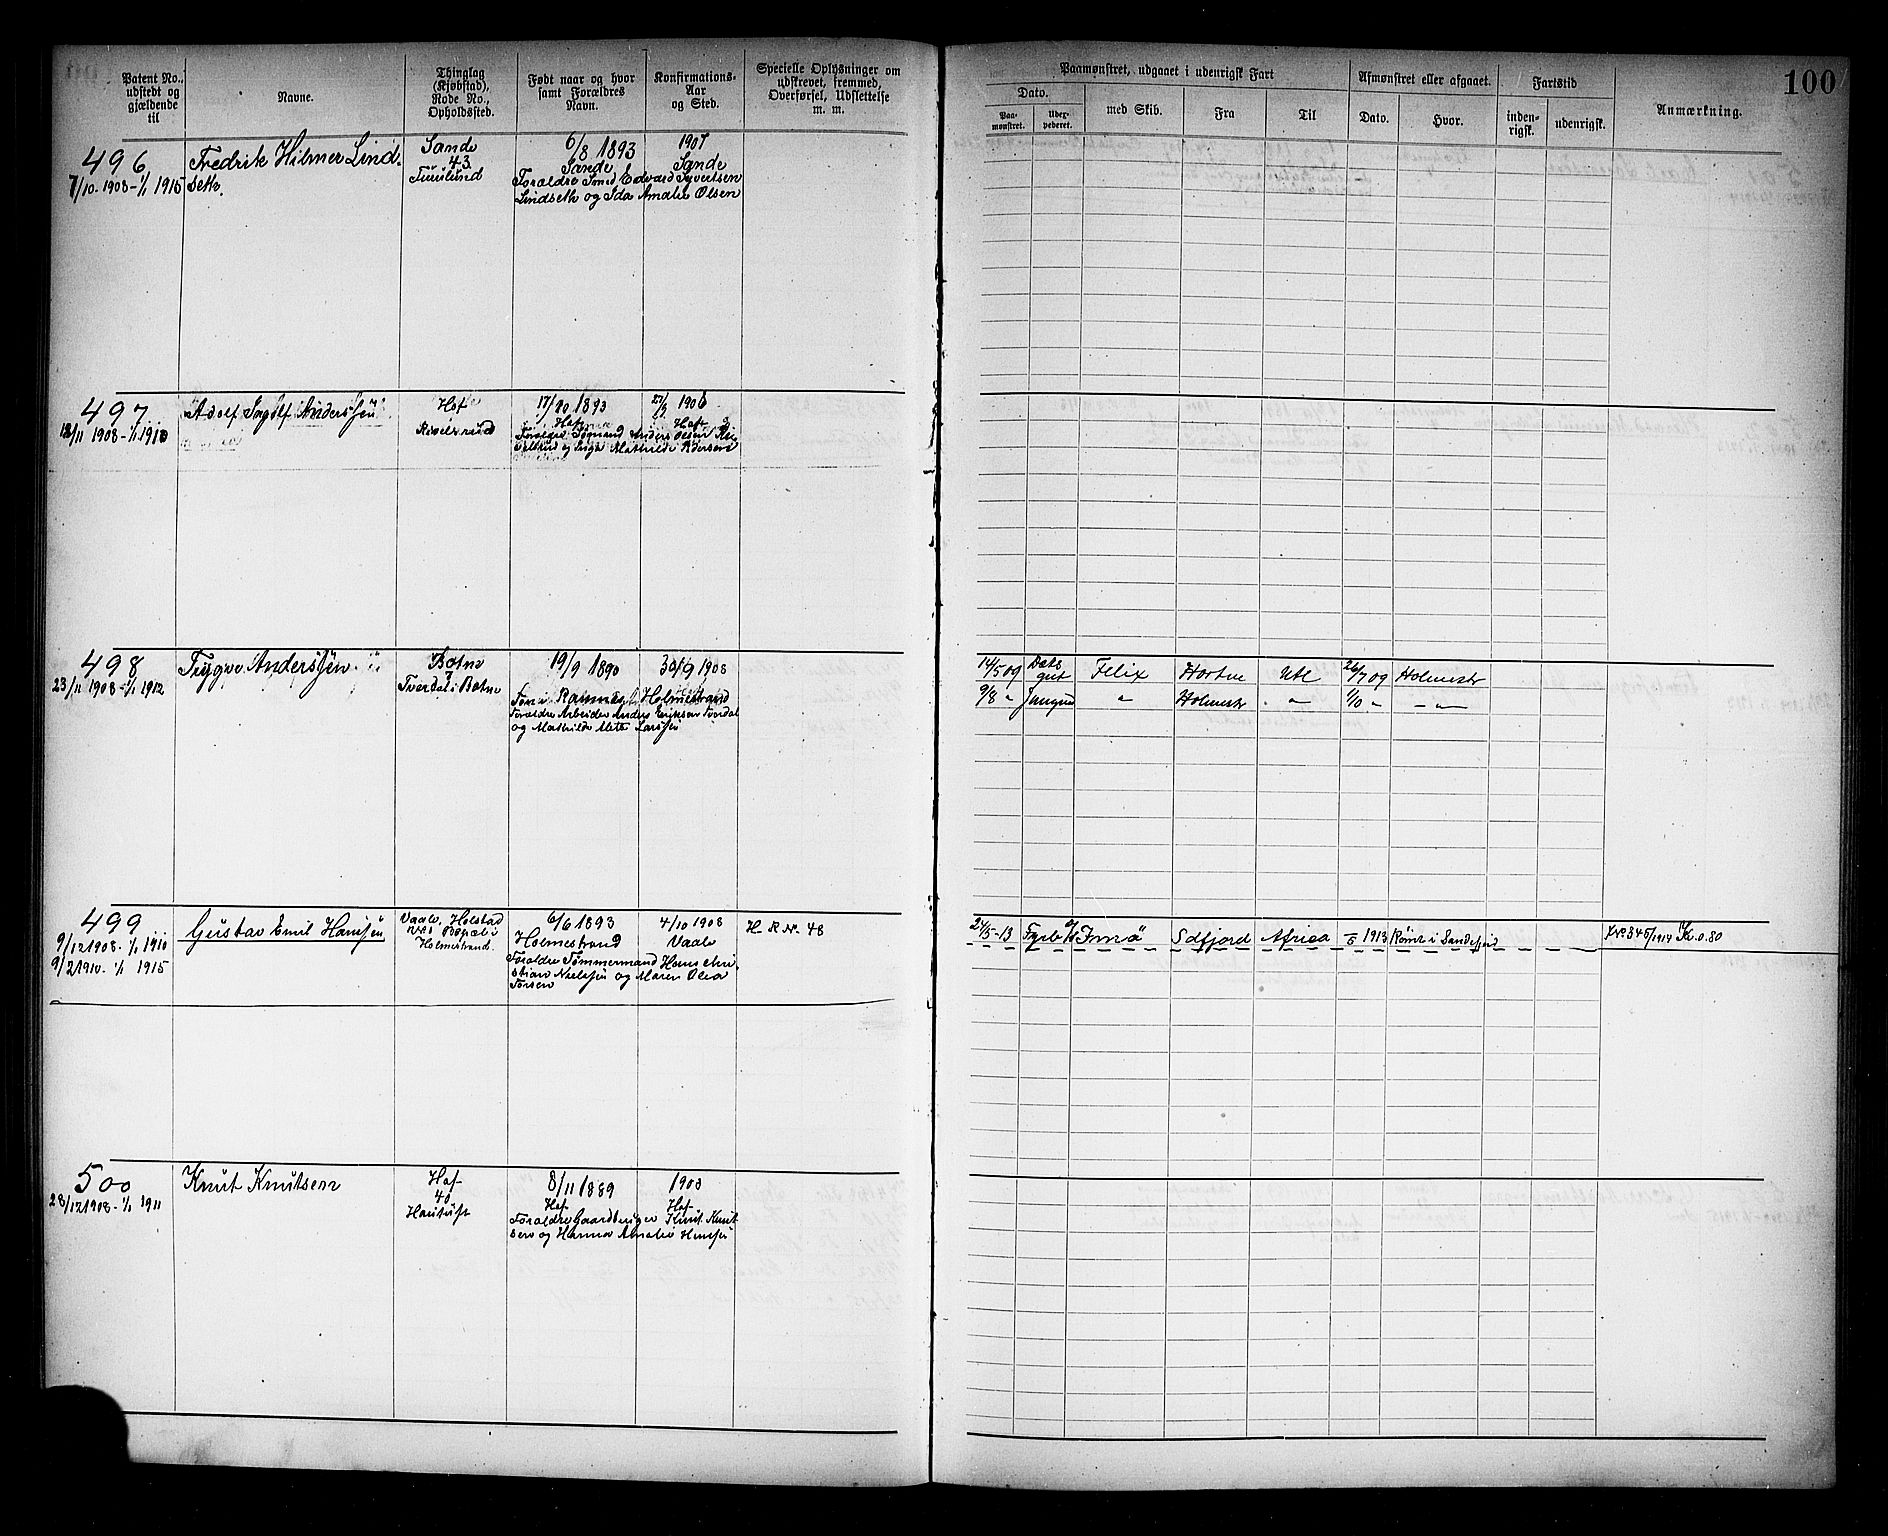 Patent No., udstedt og gjældende til
Navne.
Thinglag (Kjøbstad), Rode No., Opholdssted.
Født naar og hvor samt Forældres Navn.
Konfirmations-Aar og Sted.
Specielle Oplysninger om udstrevet, fremmed, Overførsel, Udslettelse m. m.
Paamønstret, udgaaet i udenrigsk Fart
Dato.
Paa-mønstret.
med Skib.
Fra
Til
Afmønstret eller afgaaet.
Dato.
Hvor.
Fartstid
inden-rigsk.
udenrigsk.
Anmærkning.
100
496
7/10 1908 - 1/1 1915
Fredrik Hilmer Lind-
seth.
Sande
43
6/8 1893
Sande
1907
Sande
Forældre Smed Edvard Syvertsen
Lindseth og Ida Amalie Olsen
497
18/11 1908 - 1/1 1910
Adolf Ingolf Anderssen
Hof
17/10 1893
Hof
1908
Hof
Anders Olsen
og Inga Mathilde
498
23/11 1908 - 1/1 1912
Trygve Anderssen
Botne
7
Tverdal i Botne
19/9 1890
30/9 1908
Holmestrand
Forældre Arbeider Anders Eriksen Tverdal
og Mathilde Mete Larssen
14/5 09
Felix
Horten
Utl
26/7 09
Holmestr
9/8 "
Jungm
"
Holmestr
"
1/10 "
- " -
499
9/12 1908 - 1/1 1910
9/2 1910 - 1/1 1915
Gustav Emil Hanssen
Vaale, Holstad
Holmestrand.
6/6 1893
Holmestrand
4/10 1908
Vaale
Forældre Tømmermand Hans Chri-
stian Neelssen og Maren Olea
H. R. Nr. 48
24/5-13
Fyrb
Sdfjord
Africa
1913
i Sandefjord
345/1914 Kr. 0.80
500
28/12 1908 - 1/1 1911
Knut Knutsen
Hof
40
8/11 1889
Hof
1903
Hof
Forældre Gaardbruger Knut Knut-
sen og Hanna Amalie Hanssen